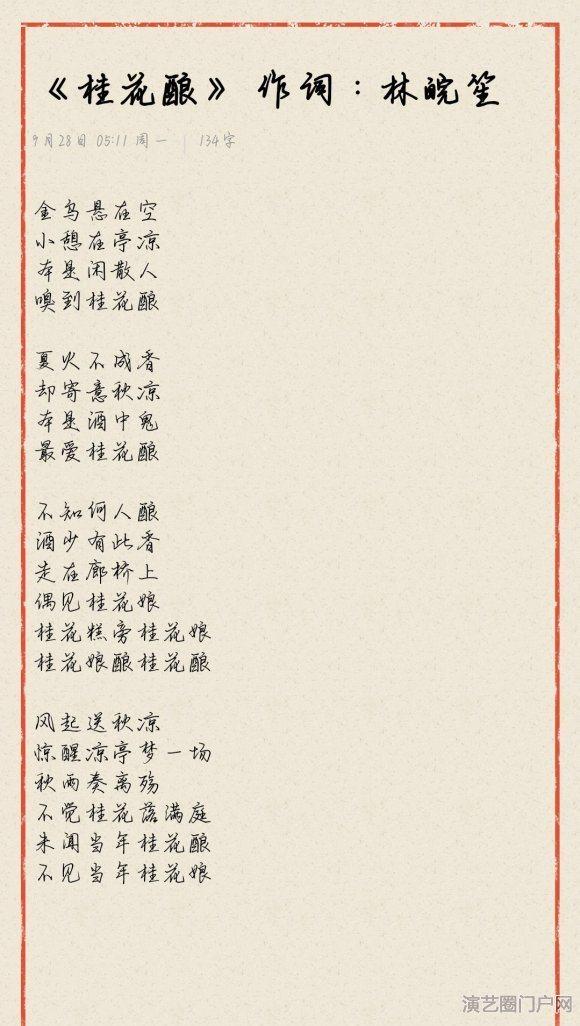 《桂花酿》 作词：林皖笙
9月28日 05:11 周一 | 134字
金乌悬在空
小憩在亭凉
本是闲散人
嗅到桂花酿
夏火不成香
却寄意秋凉
本是酒中鬼
最爱桂花酿
不知何人酿
酒少有此香
走在廊桥上
偶见桂花娘
桂花糕旁桂花娘
桂花娘酿桂花酿
风起送秋凉
惊醒凉亭梦一场
秋雨奏离殇
不觉桂花落满庭
未闻当年桂花酿
不见当年桂花娘
演艺圈门户网